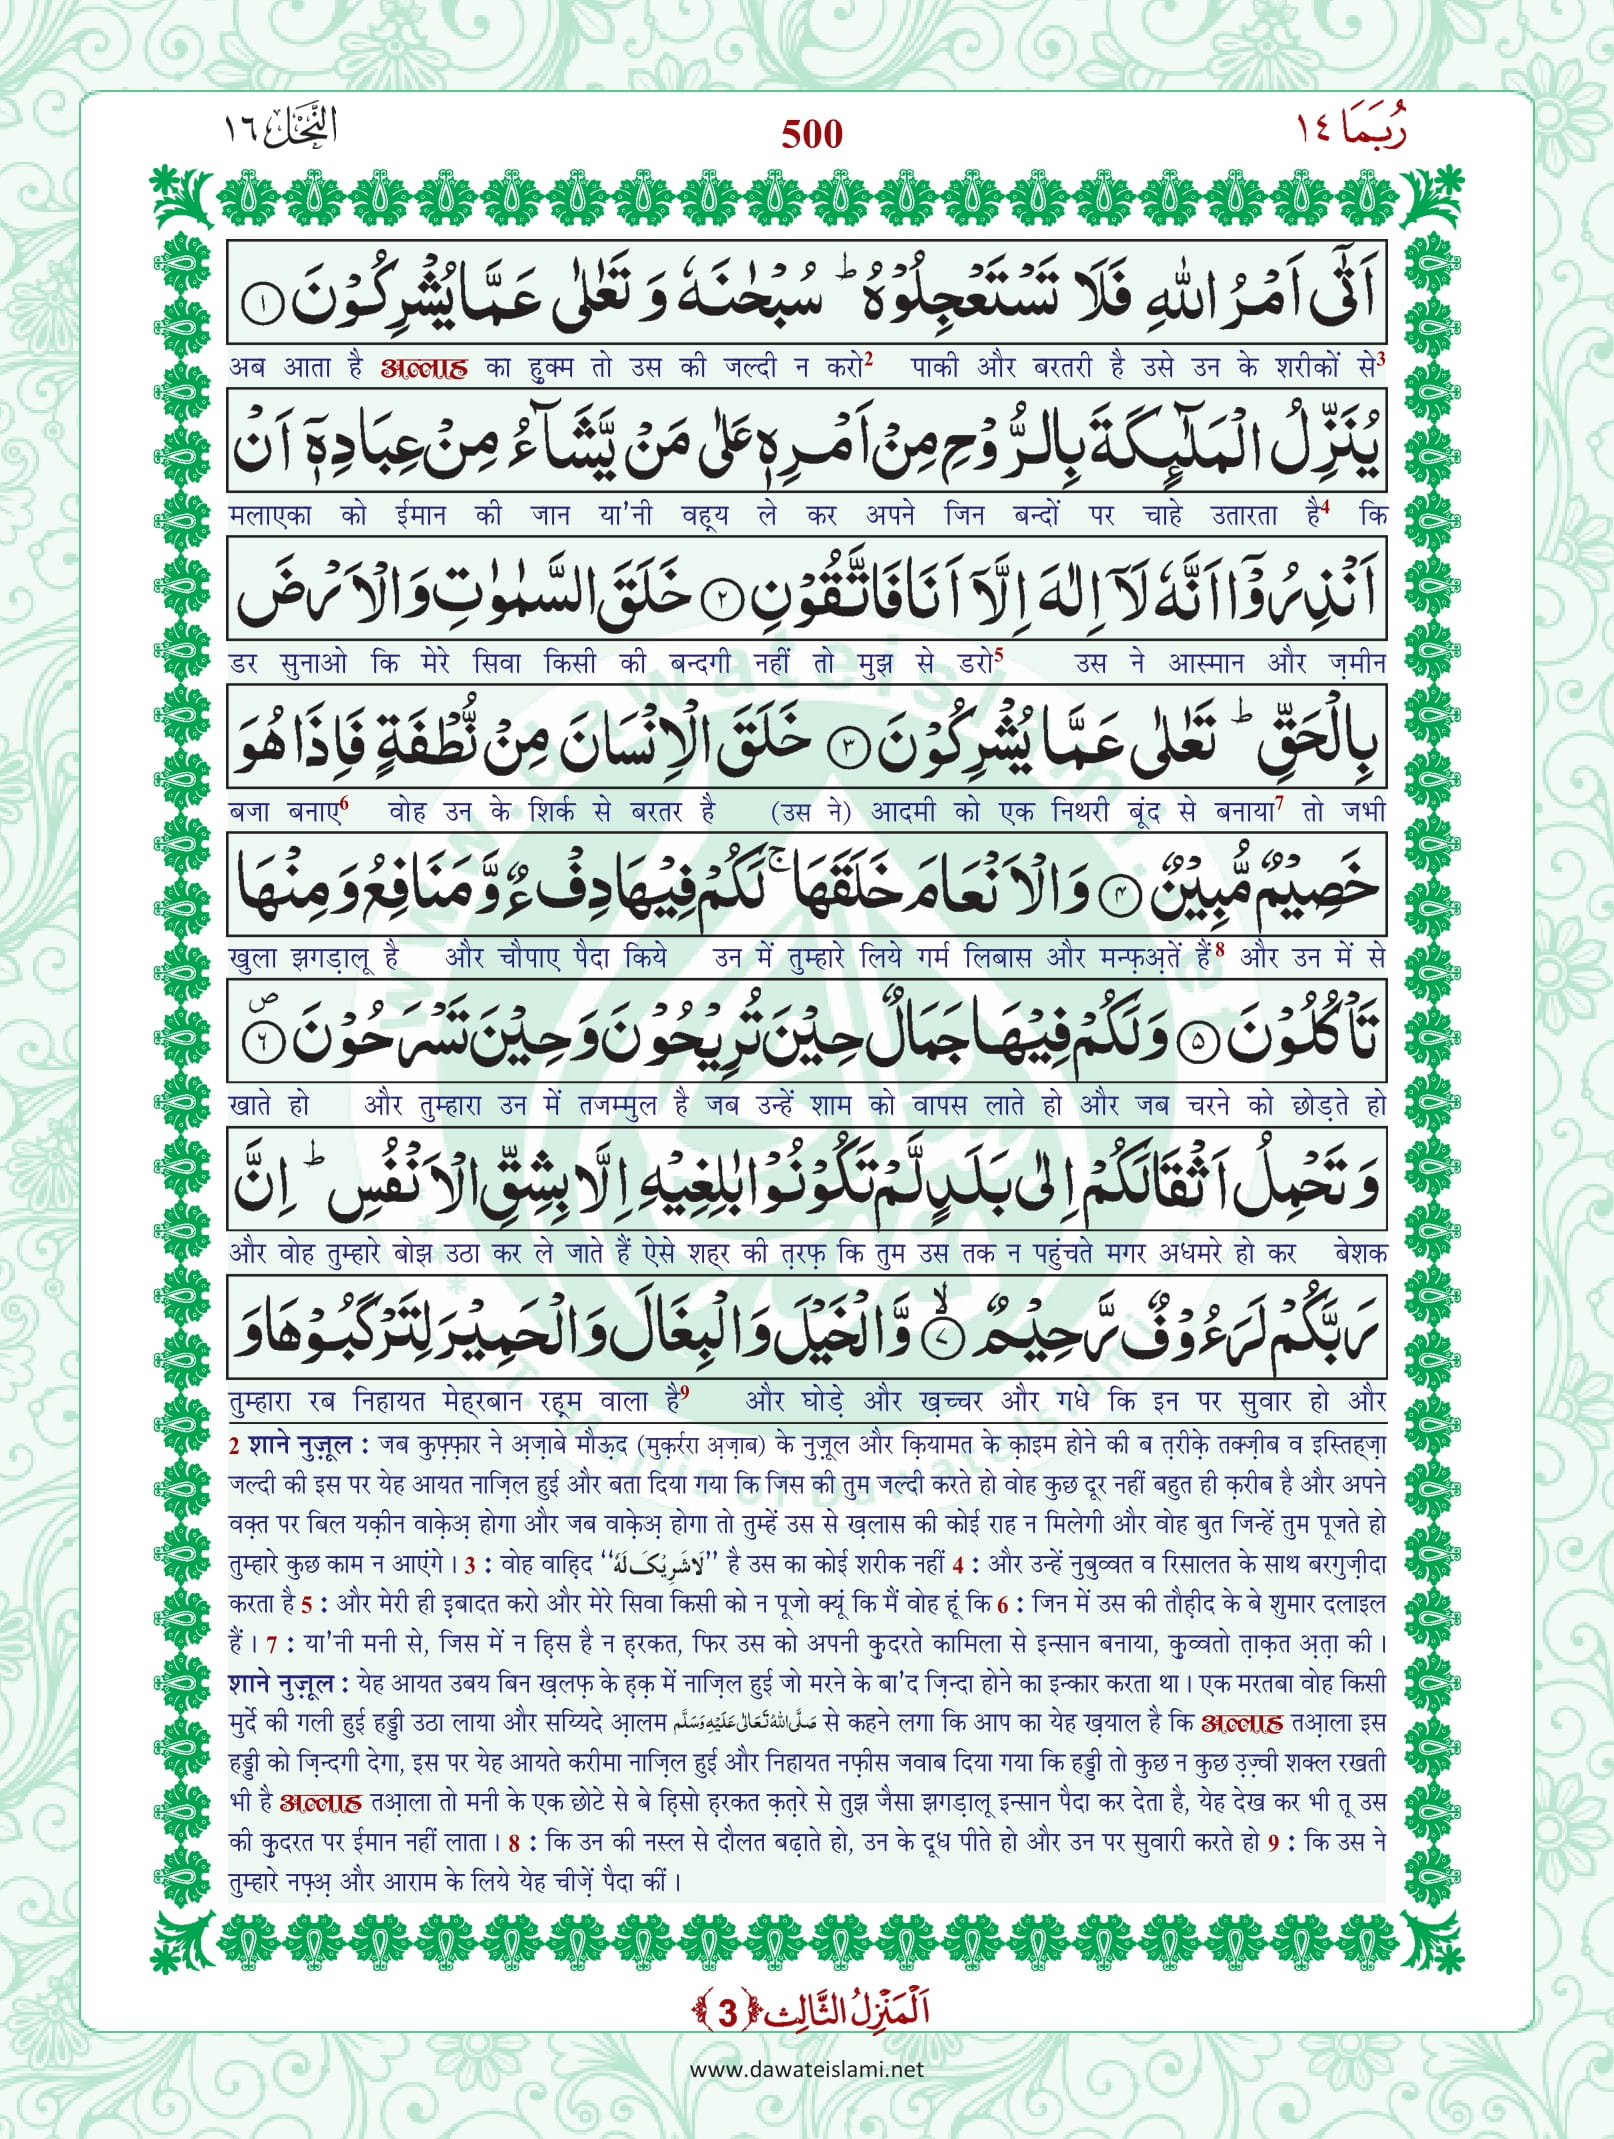 النَّحْل ١٦
500
رُبَمَا ١٤
اَتٰۤى اَمْرُ اللّٰهِ فَلَا تَسْتَعْجِلُوْهُ ؕ سُبْحٰنَهٗ وَ تَعٰلٰى عَمَّا یُشْرِكُوْنَ ۝۱
अब आता है अल्लाह का हुक्म तो उस की जल्दी न करो2 पाकी और बरतरी है उसे उन के शरीकों से3
یُنَزِّلُ الْمَلٰٓىٕكَةَ بِالرُّوْحِ مِنْ اَمْرِهٖ عَلٰى مَنْ یَّشَآءُ مِنْ عِبَادِهٖۤ اَنْ
मलाएका को ईमान की जान या'नी वह्य ले कर अपने जिन बन्दों पर चाहे उतारता है4 कि
اَنْذِرُوْۤا اَنَّهٗ لَاۤ اِلٰهَ اِلَّاۤ اَنَا فَاتَّقُوْنِ ۝۲ خَلَقَ السَّمٰوٰتِ وَ الْاَرْضَ
डर सुनाओ कि मेरे सिवा किसी की बन्दगी नहीं तो मुझ से डरो5 उस ने आस्मान और ज़मीन
بِالْحَقِّ ؕ تَعٰلٰى عَمَّا یُشْرِكُوْنَ ۝۳ خَلَقَ الْاِنْسَانَ مِنْ نُّطْفَةٍ فَاِذَا هُوَ
बजा बनाए6 वोह उन के शिर्क से बरतर है (उस ने) आदमी को एक निथरी बूंद से बनाया7 तो जभी
خَصِیْمٌ مُّبِیْنٌ ۝۴ وَ الْاَنْعَامَ خَلَقَهَا ۚ لَكُمْ فِیْهَا دِفْءٌ وَّ مَنَافِعُ وَ مِنْهَا
खुला झगड़ालू है और चौपाए पैदा किये उन में तुम्हारे लिये गर्म लिबास और मन्फ़अ़तें हैं8 और उन में से
تَاْكُلُوْنَ ۝۵ وَ لَكُمْ فِیْهَا جَمَالٌ حِیْنَ تُرِیْحُوْنَ وَ حِیْنَ تَسْرَحُوْنَ ۝۶ ص
खाते हो और तुम्हारा उन में तजम्मुल है जब उन्हें शाम को वापस लाते हो और जब चरने को छोड़ते हो
وَ تَحْمِلُ اَثْقَالَكُمْ اِلٰى بَلَدٍ لَّمْ تَكُوْنُوْا بٰلِغِیْهِ اِلَّا بِشِقِّ الْاَنْفُسِ ؕ اِنَّ
और वोह तुम्हारे बोझ उठा कर ले जाते हैं ऐसे शहर की त़रफ़ कि तुम उस तक न पहुंचते मगर अधमरे हो कर बेशक
رَبَّكُمْ لَرَءُوْفٌ رَّحِیْمٌ ۝۷ۙ وَّ الْخَیْلَ وَ الْبِغَالَ وَ الْحَمِیْرَ لِتَرْكَبُوْهَا وَ
तुम्हारा रब निहायत मेहरबान रह़्म वाला है9 और घोड़े और ख़च्चर और गधे कि इन पर सुवार हो और
2 शाने नुज़ूल : जब कुफ़्फ़ार ने अ़ज़ाबे मौऊ़द (मुक़र्ररा अ़ज़ाब) के नुज़ूल और क़ियामत के क़ाइम होने की ब त़रीक़े तक्ज़ीब व इस्तिह्ज़ा
जल्दी की इस पर येह आयत नाज़िल हुई और बता दिया गया कि जिस की तुम जल्दी करते हो वोह कुछ दूर नहीं बहुत ही क़रीब है और अपने
वक़्त पर बिल यक़ीन वाक़ेअ़ होगा और जब वाक़ेअ़ होगा तो तुम्हें उस से ख़लास की कोई राह न मिलेगी और वोह बुत जिन्हें तुम पूजते हो
तुम्हारे कुछ काम न आएंगे । 3 : वोह वाह़िद ‘‘لَاشَرِیْکَ لَهٗ’’ है उस का कोई शरीक नहीं 4 : और उन्हें नुबुव्वत व रिसालत के साथ बरगुज़ीदा
करता है 5 : और मेरी ही इ़बादत करो और मेरे सिवा किसी को न पूजो क्यूं कि मैं वोह हूं कि 6 : जिन में उस की तौह़ीद के बे शुमार दलाइल
हैं । 7 : या'नी मनी से, जिस में न ह़िस है न ह़रकत, फिर उस को अपनी क़ुदरते कामिला से इन्सान बनाया, क़ुव्वतो त़ाक़त अ़त़ा की ।
शाने नुज़ूल : येह आयत उबय बिन ख़लफ़ के ह़क़ में नाज़िल हुई जो मरने के बा'द ज़िन्दा होने का इन्कार करता था । एक मरतबा वोह किसी
मुर्दे की गली हुई हड्डी उठा लाया और सय्यिदे आ़लम صَلَّى اللهُ تَعَالٰى عَلَيْهِ وَسَلَّم से कहने लगा कि आप का येह ख़याल है कि अल्लाह तआ़ला इस
हड्डी को ज़िन्दगी देगा, इस पर येह आयते करीमा नाज़िल हुई और निहायत नफ़ीस जवाब दिया गया कि हड्डी तो कुछ न कुछ उ़ज़्वी शक्ल रखती
भी है अल्लाह तआ़ला तो मनी के एक छोटे से बे ह़िसो ह़रकत क़त़रे से तुझ जैसा झगड़ालू इन्सान पैदा कर देता है, येह देख कर भी तू उस
की क़ुदरत पर ईमान नहीं लाता । 8 : कि उन की नस्ल से दौलत बढ़ाते हो, उन के दूध पीते हो और उन पर सुवारी करते हो 9 : कि उस ने
तुम्हारे नफ़्अ़ और आराम के लिये येह चीज़ें पैदा कीं ।
اَلْمَنْزِلُ الثَّالِث ﴿3﴾
www.dawateislami.net